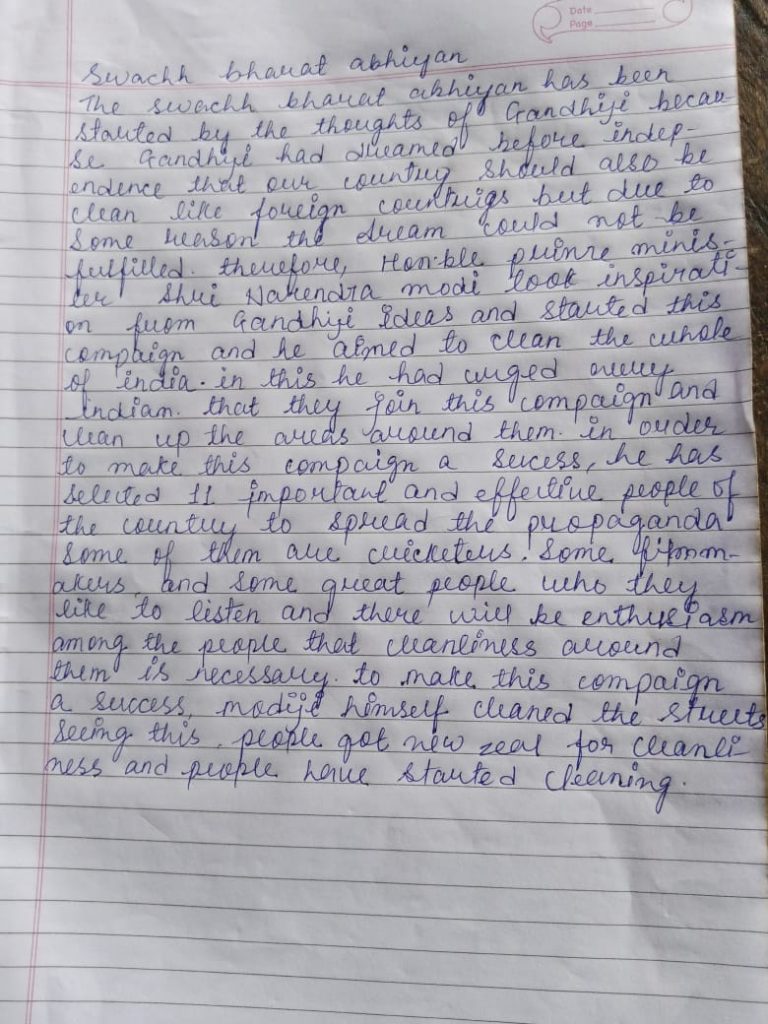 Date
Page
Swachh bharat abhiyan
The swachh bharat abhiyan has been
started by the thoughts of Gandhiji becau
se Gandhiji had dreamed before indep-
endence that our country should also be
clean like foreign countries but due to
some reason the dream could not be
fulfilled. therefore, Hon.ble prime minis-
ter Shri Narendra modi look inspirati-
on from Gandhiji ideas and started this
compaign and he aimed to clean the whole
of india. in this he had urged every
indian. that they join this compaign and
clean up the areas around them. in order
to make this compaign a sucess, he has
selected 11 important and effective people of
the country to spread the propaganda
some of them are cricketers. Some filmm-
akers, and some great people who they
like to listen and there will be enthusiasm
among the people that cleanliness around
them is necessary. to make this compaign
a success, modiji himself cleaned the streets
seeing this, people got new zeal for cleanli
ness and people have started cleaning.